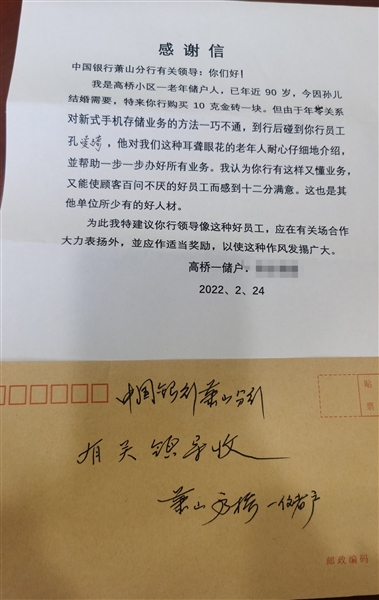 感谢信
中国银行萧山分行有关领导：你们好！
我是高桥小区一老年储户人，已年近 90 岁，今因孙儿
结婚需要，特来你行购买 10 克金砖一块。但由于年零关系
对新式手机存储业务的方法一巧不通，到行后碰到你行员工
孔，他对我们这种耳聋眼花的老年人耐心仔细地介绍，
并帮助一步一步办好所有业务。我认为你行有这样又懂业务，
又能使顾客百问不厌的好员工而感到十二分满意。这也是其
他单位所少有的好人材。
为此我特建议你行领导像这种好员工，应在有关场合作
大力表扬外，并应作适当奖励，以使这种作风发揚广大。
高桥一储户．
2022、2、24
贴
中国银行萧山分行
有关领导收
萧山高桥一储户
邮政编码